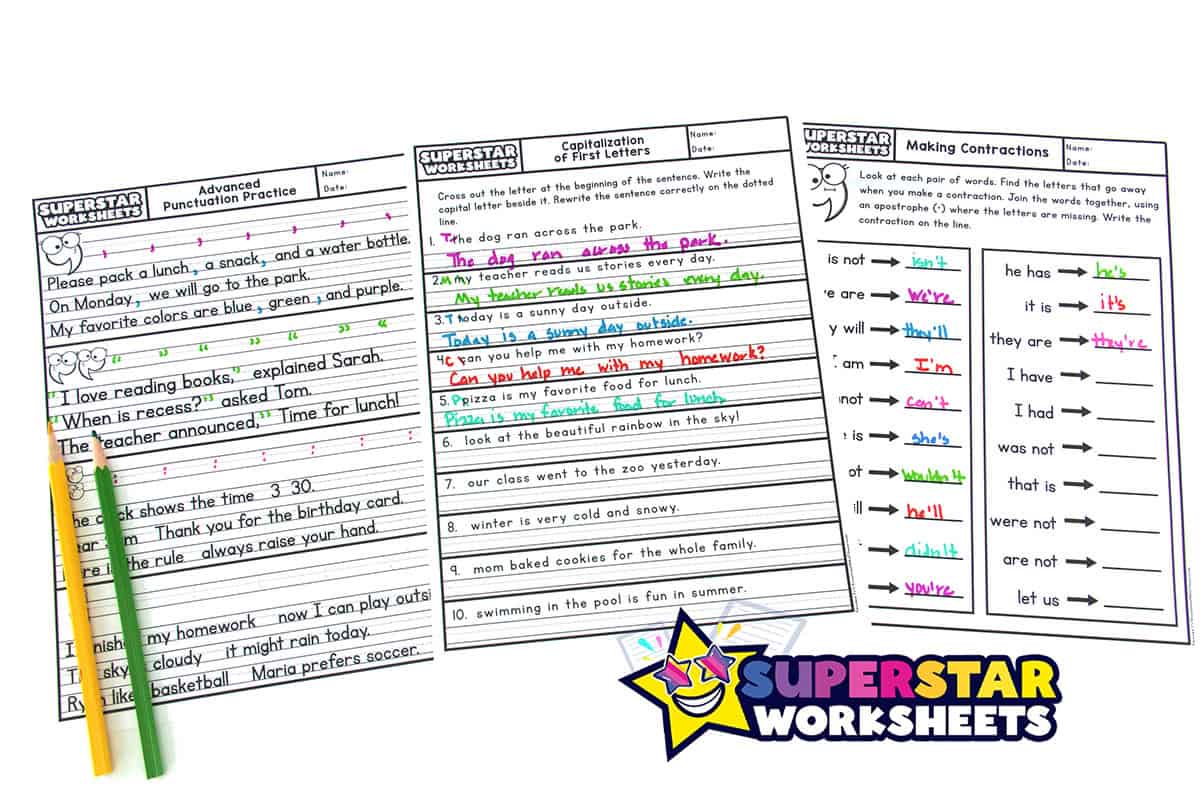 SUPERSTAR
WORKSHEETS
Advanced
Punctuation Practice
Name:
Date:
, , , , , , ,
Please pack a lunch, a snack, and a water bottle.
On Monday, we will go to the park.
My favorite colors are blue, green, and purple.
“ ” “ ” “ ” “
“I love reading books,” explained Sarah.
“When is recess?” asked Tom.
The teacher announced,” Time for lunch!
: : : : : :
shows the time 3 30.
Thank you for the birthday card.
the rule always raise your hand.
my homework now I can play outsi
cloudy it might rain today.
like basketball Maria prefers soccer.
SUPERSTAR
WORKSHEETS
Capitalization
of First Letters
Name:
Date:
Cross out the letter at the beginning of the sentence. Write the
capital letter beside it. Rewrite the sentence correctly on the dotted
line.
1. T the dog ran across the park.
The dog ran across the park.
2. M my teacher reads us stories every day.
My teacher reads us stories every day.
3. T today is a sunny day outside.
Today is a sunny day outside.
4. C can you help me with my homework?
Can you help me with my homework?
5. P pizza is my favorite food for lunch.
Pizza is my favorite food for lunch.
6. look at the beautiful rainbow in the sky!
7. our class went to the zoo yesterday.
8. winter is very cold and snowy.
9. mom baked cookies for the whole family.
10. swimming in the pool is fun in summer.
SUPERSTAR
WORKSHEETS
Making Contractions
Name:
Date:
Look at each pair of words. Find the letters that go away
when you make a contraction. Join the words together, using
an apostrophe (') where the letters are missing. Write the
contraction on the line.
is not → isn't
e are → we're
y will → they'll
am → I'm
not → can't
e is → she's
ot → wouldn't
ill → he'll
→ didn't
→ you're
he has → he's
it is → it's
they are → they're
I have →
I had →
was not →
that is →
were not →
are not →
let us →
SUPERSTAR
WORKSHEETS